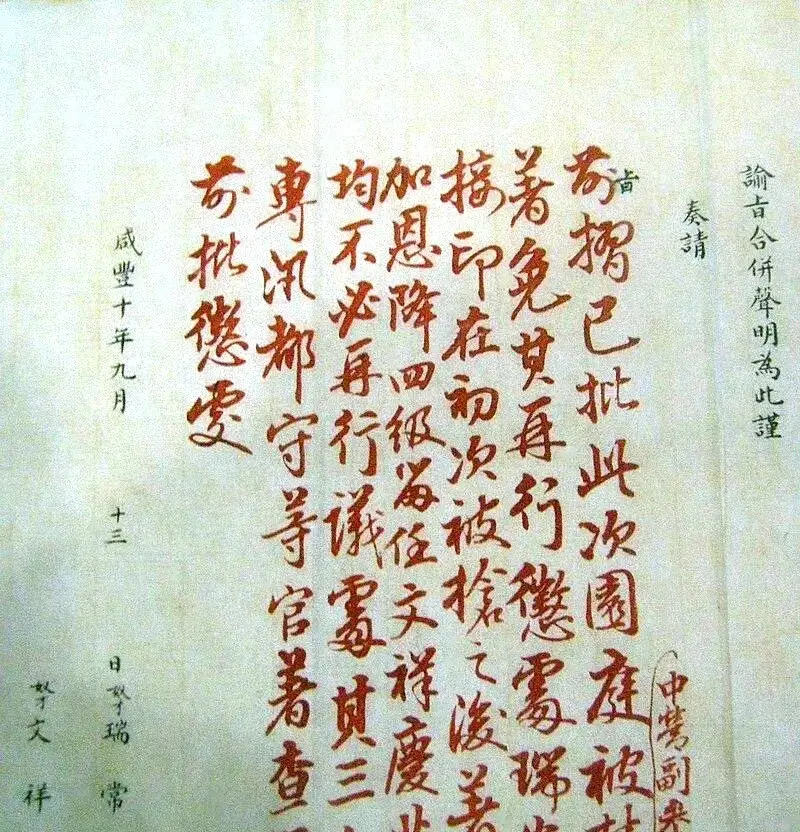 諭旨合併聲明為此謹
奏請
旨
前摺已批此次園庭被
中營副
著免其再行懲處瑞
接印在初次被搶之後著
加恩降四級留任文祥慶
均不必再行議處其三
專汛都守等官著查
前批懲處
咸豐十年九月 十三 日奴才瑞常
奴才文祥